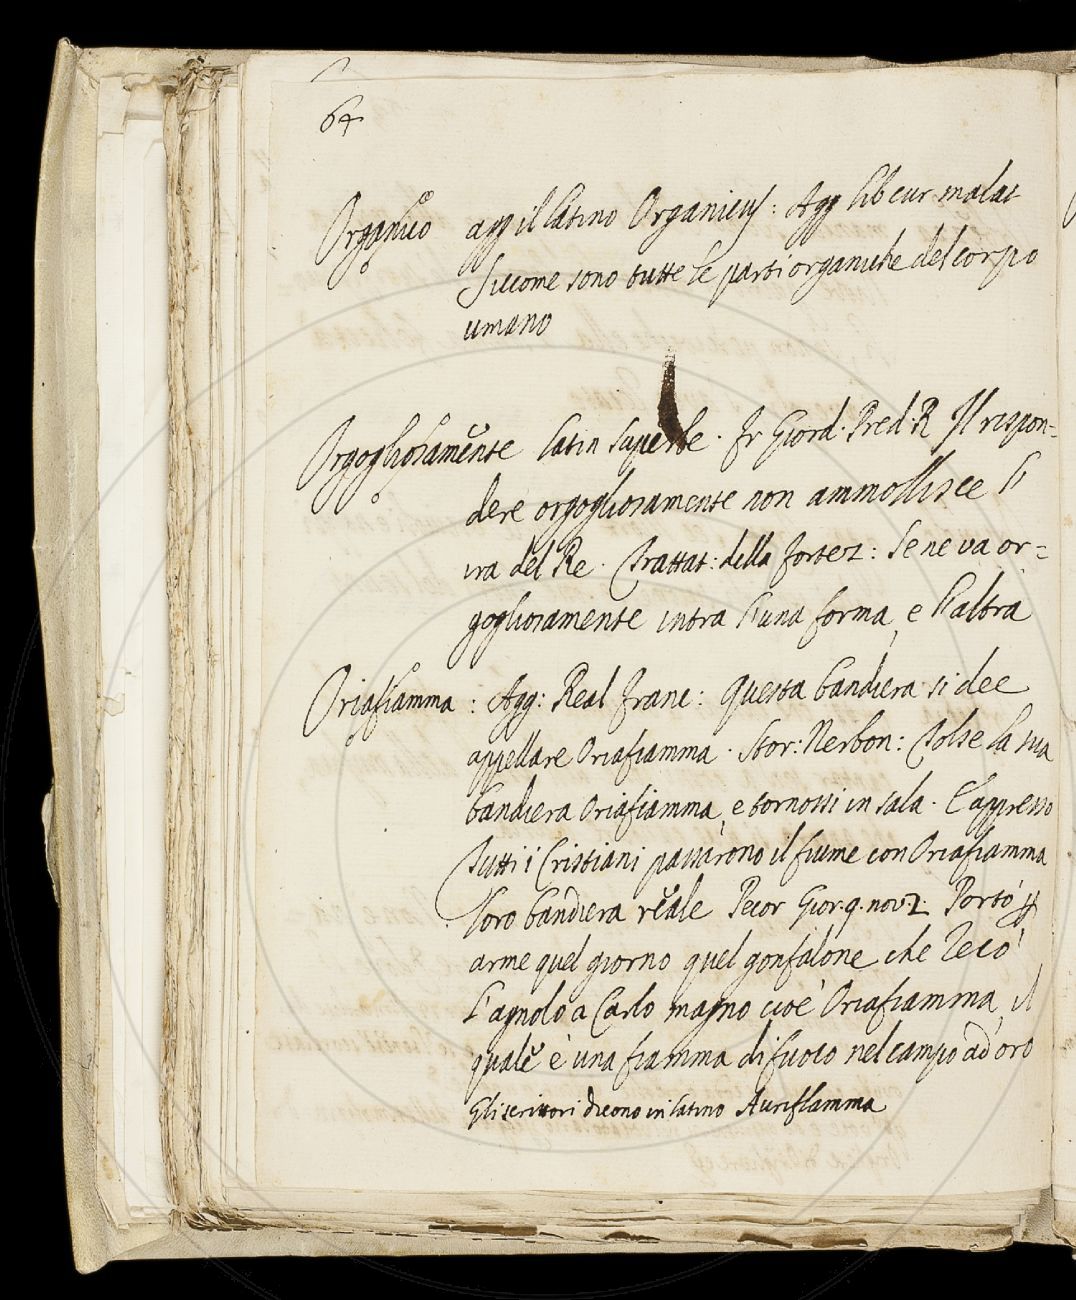 64
Organico agg il latino Organicus: Agg lib cur malat
siccome sono tutte le parti organiche del corpo
umano
Orgogliosamente latin superbe. fr Giord. Pred. R Il rispon=
dere orgogliosamente non ammollisce l'
ira del Re. Trattat: della fortez: Se ne va or=
gogliosamente intra l'una forma, e l'altra
Oriafiamma: Agg: Real franc: Questa bandiera si dee
appellare Oriafiamma. Stor: Nerbon: Tolse la sua
bandiera Oriafiamma, e tornossi in sala. E appresso
Tutti i Cristiani passarono il fiume con Oriafiamma
loro bandiera reale Pecor Gior. 9. nov 2. Portò p
arme quel giorno quel gonfalone che recò
l'agnolo a Carlo magno cioè Oriafiamma, il
quale è una fiamma di fuoco nel campo ad oro
Gli scrittori dicono in latino Auriflamma